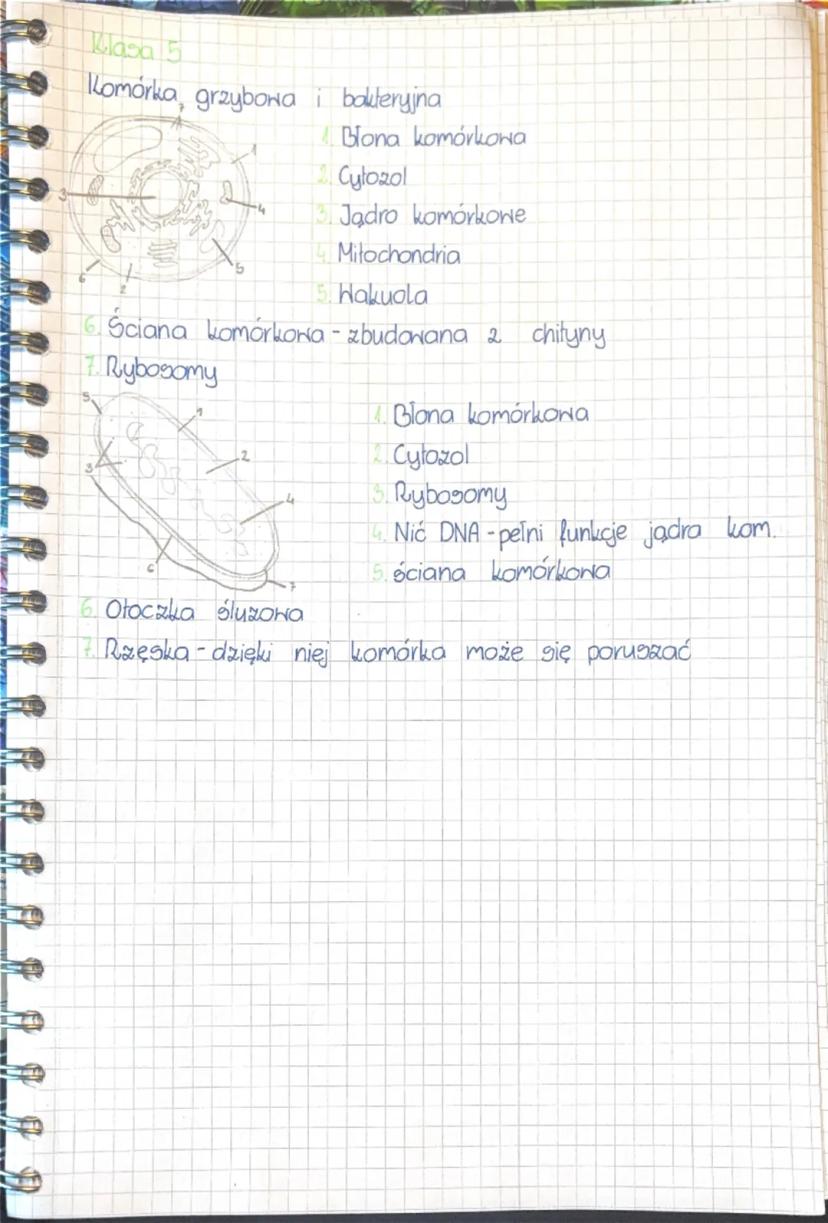 Klasa 5
Komórka grzybowa i bakteryjna
7
1
3
4
5
6
2
1. Błona komórkowa
2. Cytozol
3. Jądro komórkowe
4. Mitochondria
5. Wakuola
6. Ściana komórkowa - zbudowana z chityny
7. Rybosomy
5
1
2
3
4
6
7
1. Błona komórkowa
2. Cytozol
3. Rybosomy
4. Nić DNA - pełni funkcje jądra kom.
5. ściana komórkowa
6. Otoczka śluzowa
7. Rzęska - dzięki niej komórka może się poruszać